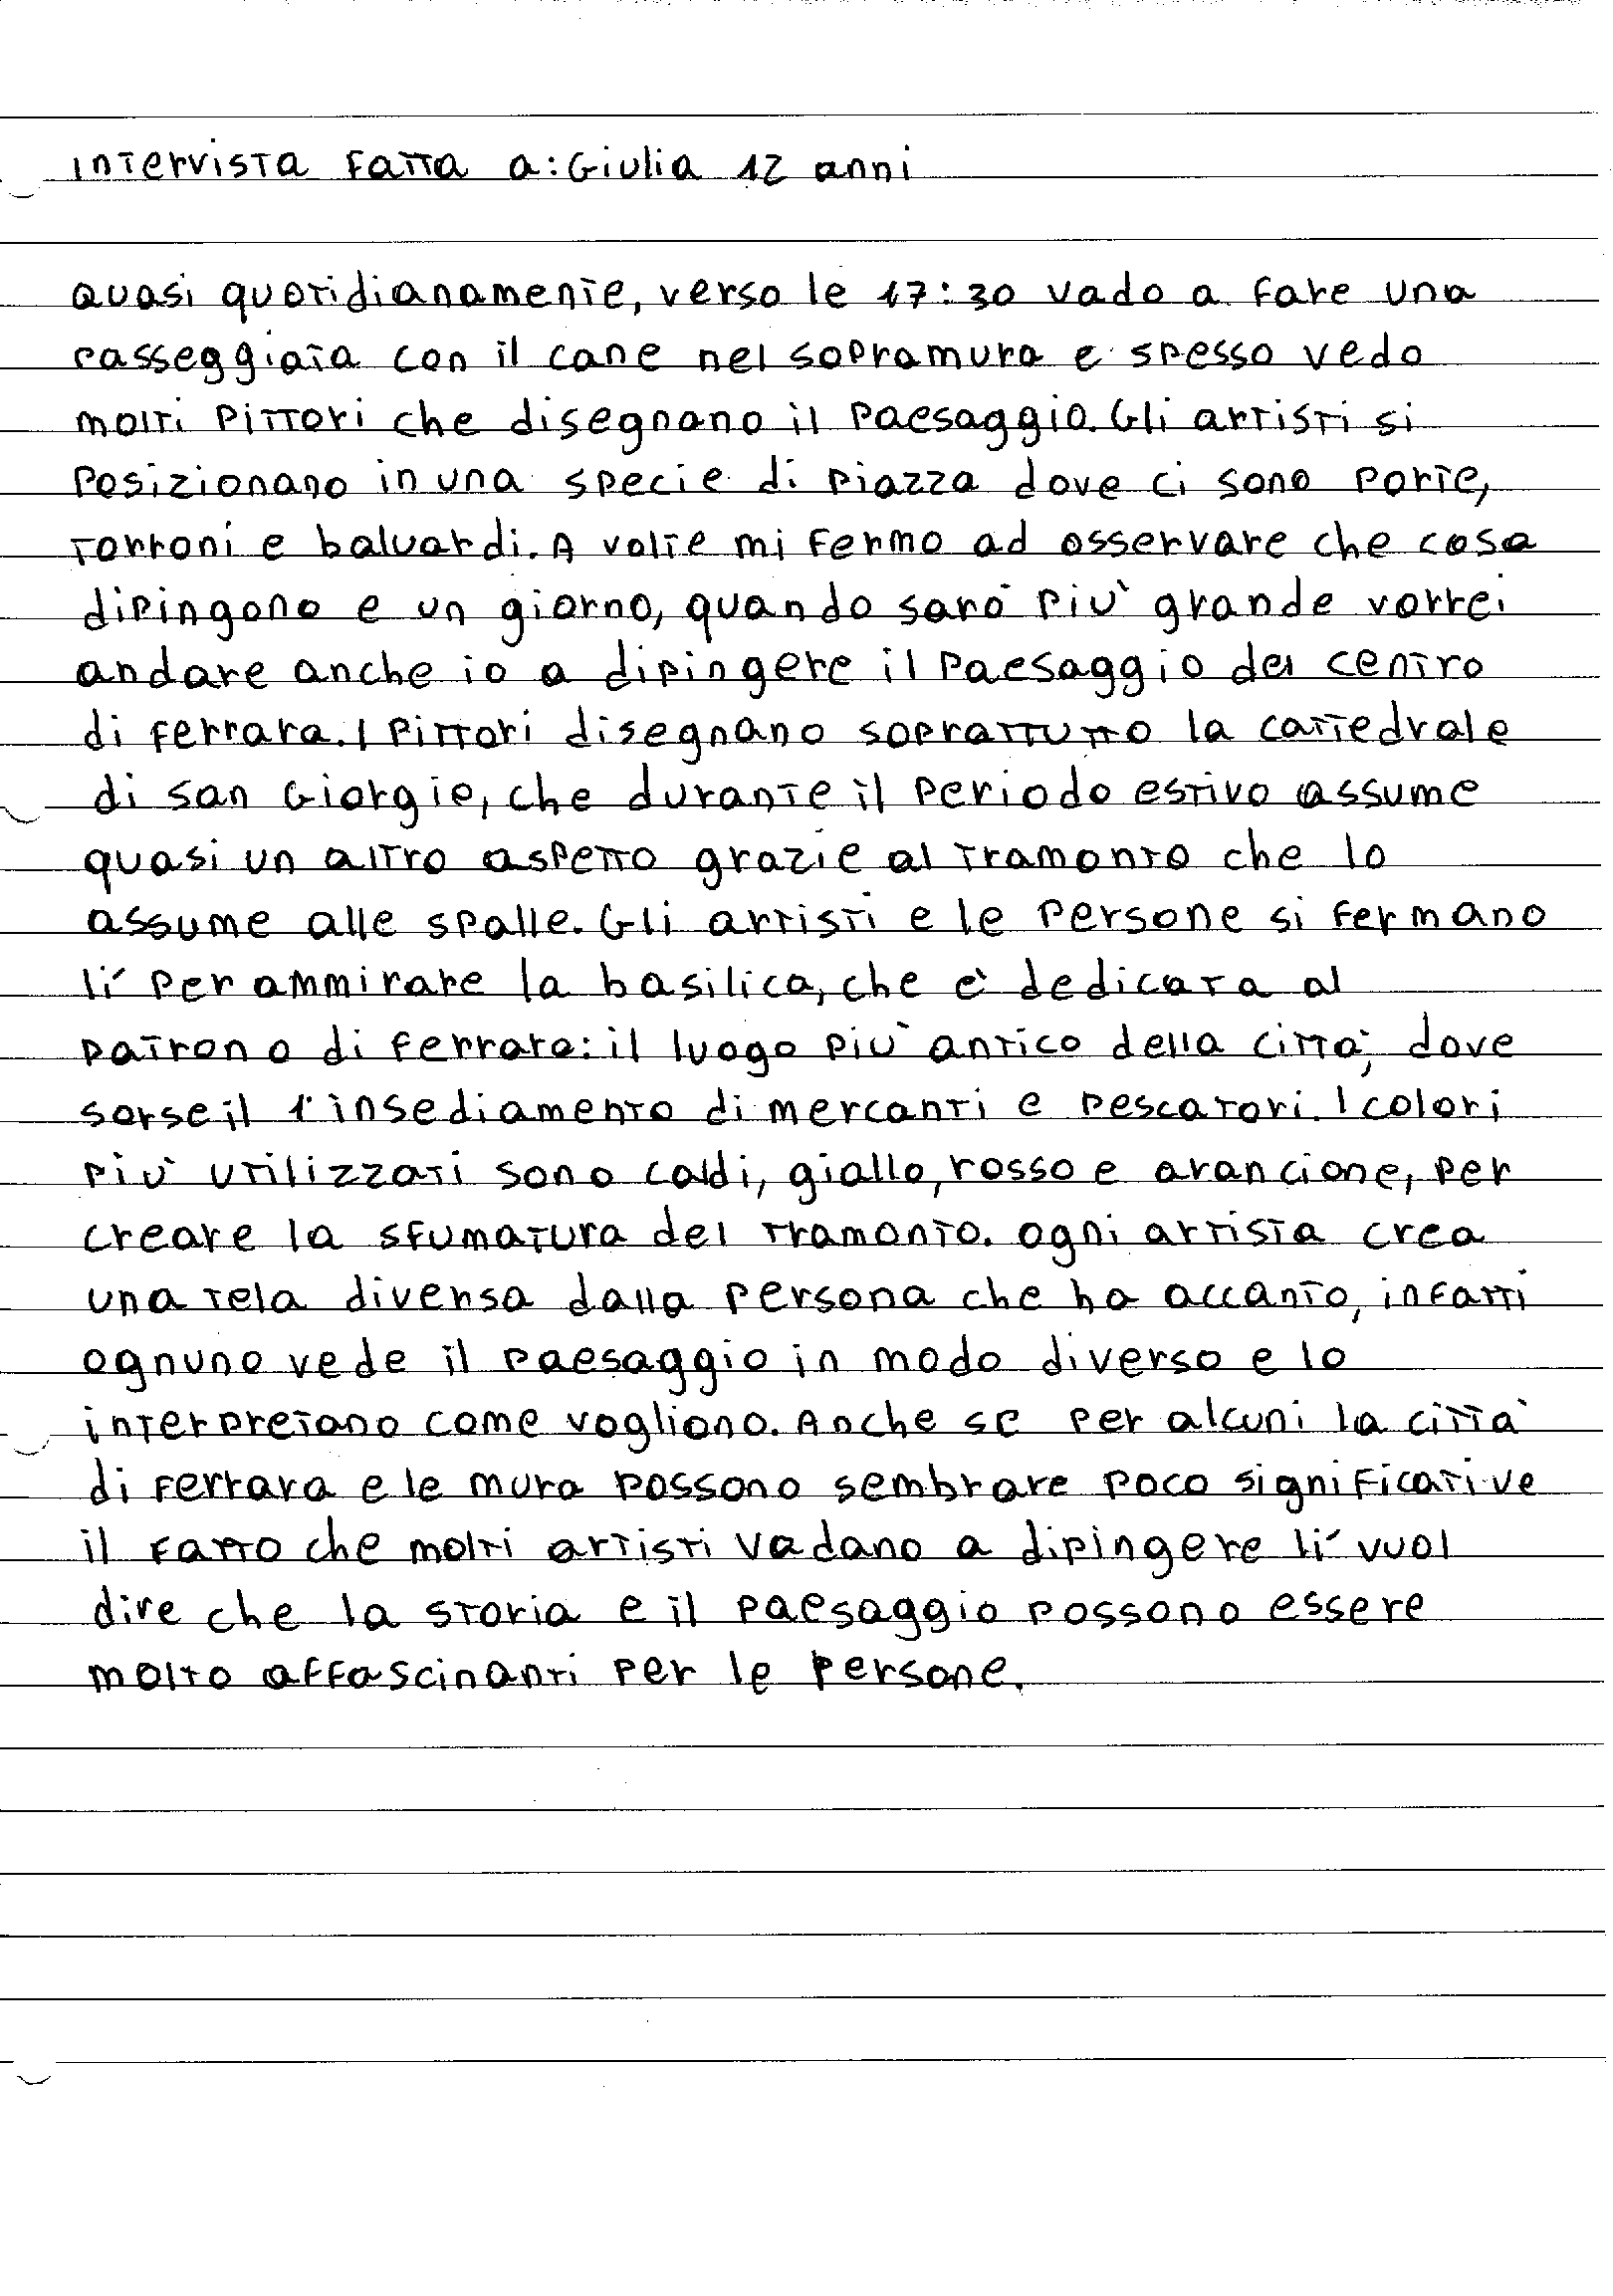 intervista fatta a: Giulia 12 anni
Quasi quotidianamente, verso le 17:30 vado a fare una
passeggiata con il cane nel sopramura e spesso vedo
molti pittori che disegnano il paesaggio. Gli artisti si
posizionano in una specie di piazza dove ci sono porte,
torroni e baluardi. A volte mi fermo ad osservare che cosa
dipingono e un giorno, quando sarò più grande vorrei
andare anche io a dipingere il paesaggio del centro
di ferrara. I pittori disegnano soprattutto la cattedrale
di san Giorgio, che durante il periodo estivo assume
quasi un altro aspetto grazie al tramonto che lo
assume alle spalle. Gli artisti e le persone si fermano
lí per ammirare la basilica, che è dedicata al
patrono di ferrara: il luogo più antico della città, dove
sorse il 1° insediamento di mercanti e pescatori. I colori
più utilizzati sono caldi, giallo, rosso e arancione, per
creare la sfumatura del tramonto. Ogni artista crea
una tela diversa dalla persona che ha accanto, infatti
ognuno vede il paesaggio in modo diverso e lo
interpretano come vogliono. Anche se per alcuni la città
di ferrara e le mura possono sembrare poco significative
il fatto che molti artisti vadano a dipingere lí vuol
dire che la storia e il paesaggio possono essere
molto affascinanti per le persone.